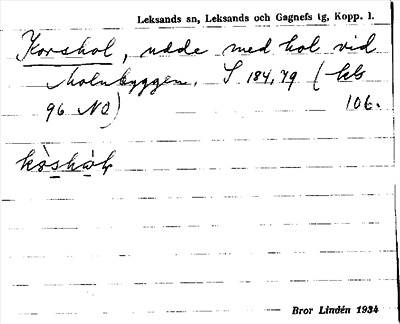 Leksands sn, Leksands och Gagnefs tg, Kopp. l.
Korshol, udde med hol vid
Molnbyggen. S 184, 79 (kb
96 NO) 106.
Bror Lindén 1934